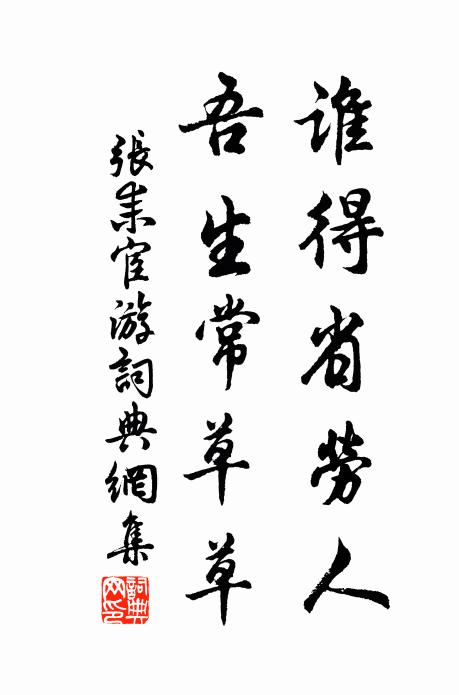 誰得省勞人
吾生常草草
張耒宦游詞典網集
詞典
网印